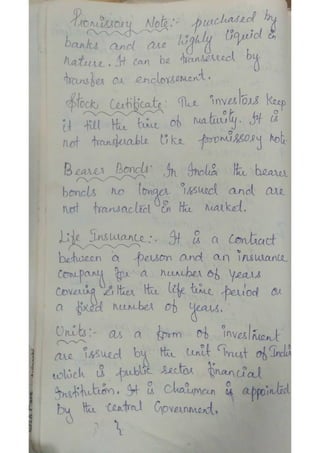 Promissory Note:- purchased by
banks and are highly liquid in
nature. It can be transerred by
transfer or endorsement.
Stock Certificate: The investors keep
it till the time of maturity. It is
not transferable like promissory note
Bearer Bonds: In India the bearer
bonds no longer issued and are
not transacted in the market.
Life Insurance:- It is a contract
between a person and an insurance
company for a number of years
covering either the life time period or
a fixed number of years.
Units:- as a form of investment
are issued by the unit Trust of India
which is public sector financial
Institution. It is Chairman is appointed
by the central Government.